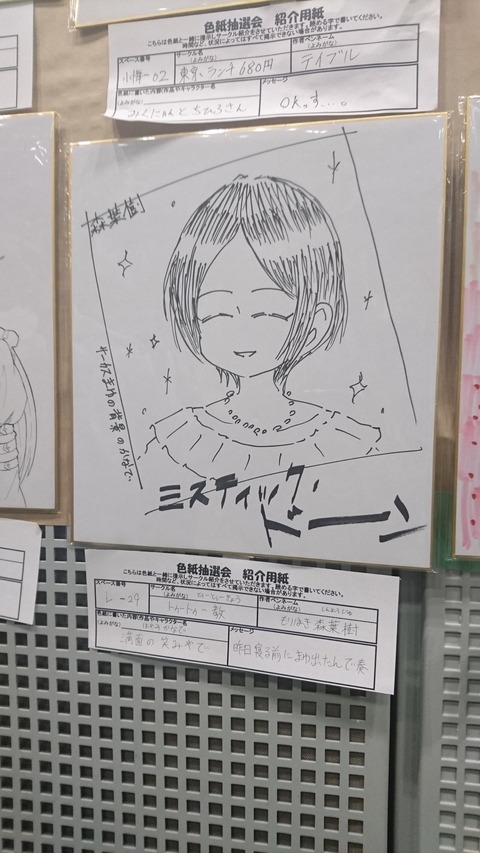 色紙抽選会 紹介用紙
こちらは色紙と一緒に提示しサークル紹介をさせていただきます。読める字で書いてください。
時間など、状況によってはすべて掲示できない場合があります。
スペース番号 サークル名 (よみがな) 作者ペンネーム (よみがな)
02 東京ランチ680円 テイブル
色紙に書いた内容(作品やキャラクター名) (よみがな) メッセージ
みくにゃんとちひろさん OKっす…。
森葉樹
ミスティック・
ドーン
色紙抽選会 紹介用紙
こちらは色紙と一緒に提示しサークル紹介をさせていただきます。読める字で書いてください。
時間など、状況によってはすべて掲示できない場合があります。
スペース番号 サークル名 (よみがな) 作者ペンネーム (よみがな)
L-29 トゥートゥー教 もりはき森葉樹
色紙に書いた内容(作品やキャラクター名) (よみがな) はやみかなで メッセージ
満面の笑みやで 昨日寝る前にまゆ出たんで奏